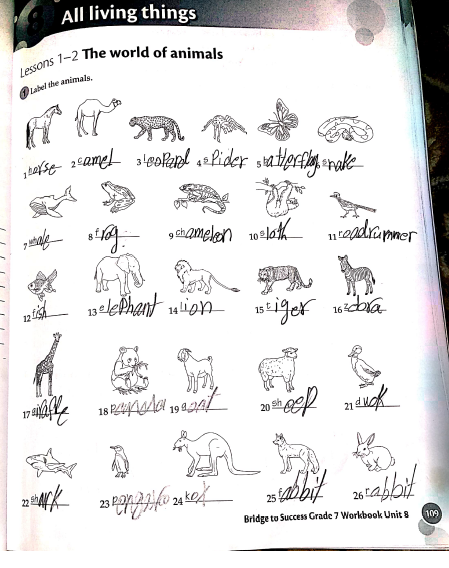 8 All living things
Lessons 1–2 The world of animals
1 Label the animals.
1 horse 2 camel 3 leopard 4 spider 5 batterfly 6 snake
7 whale 8 frog 9 chameleon 10 sloth 11 roadrummer
12 fish 13 elephant 14 lion 15 tiger 16 zebra
17 giraffe 18 panda 19 goat 20 sheep 21 duck
22 shark 23 24 25 26 rabbit
Bridge to Success Grade 7 Workbook Unit 8 109